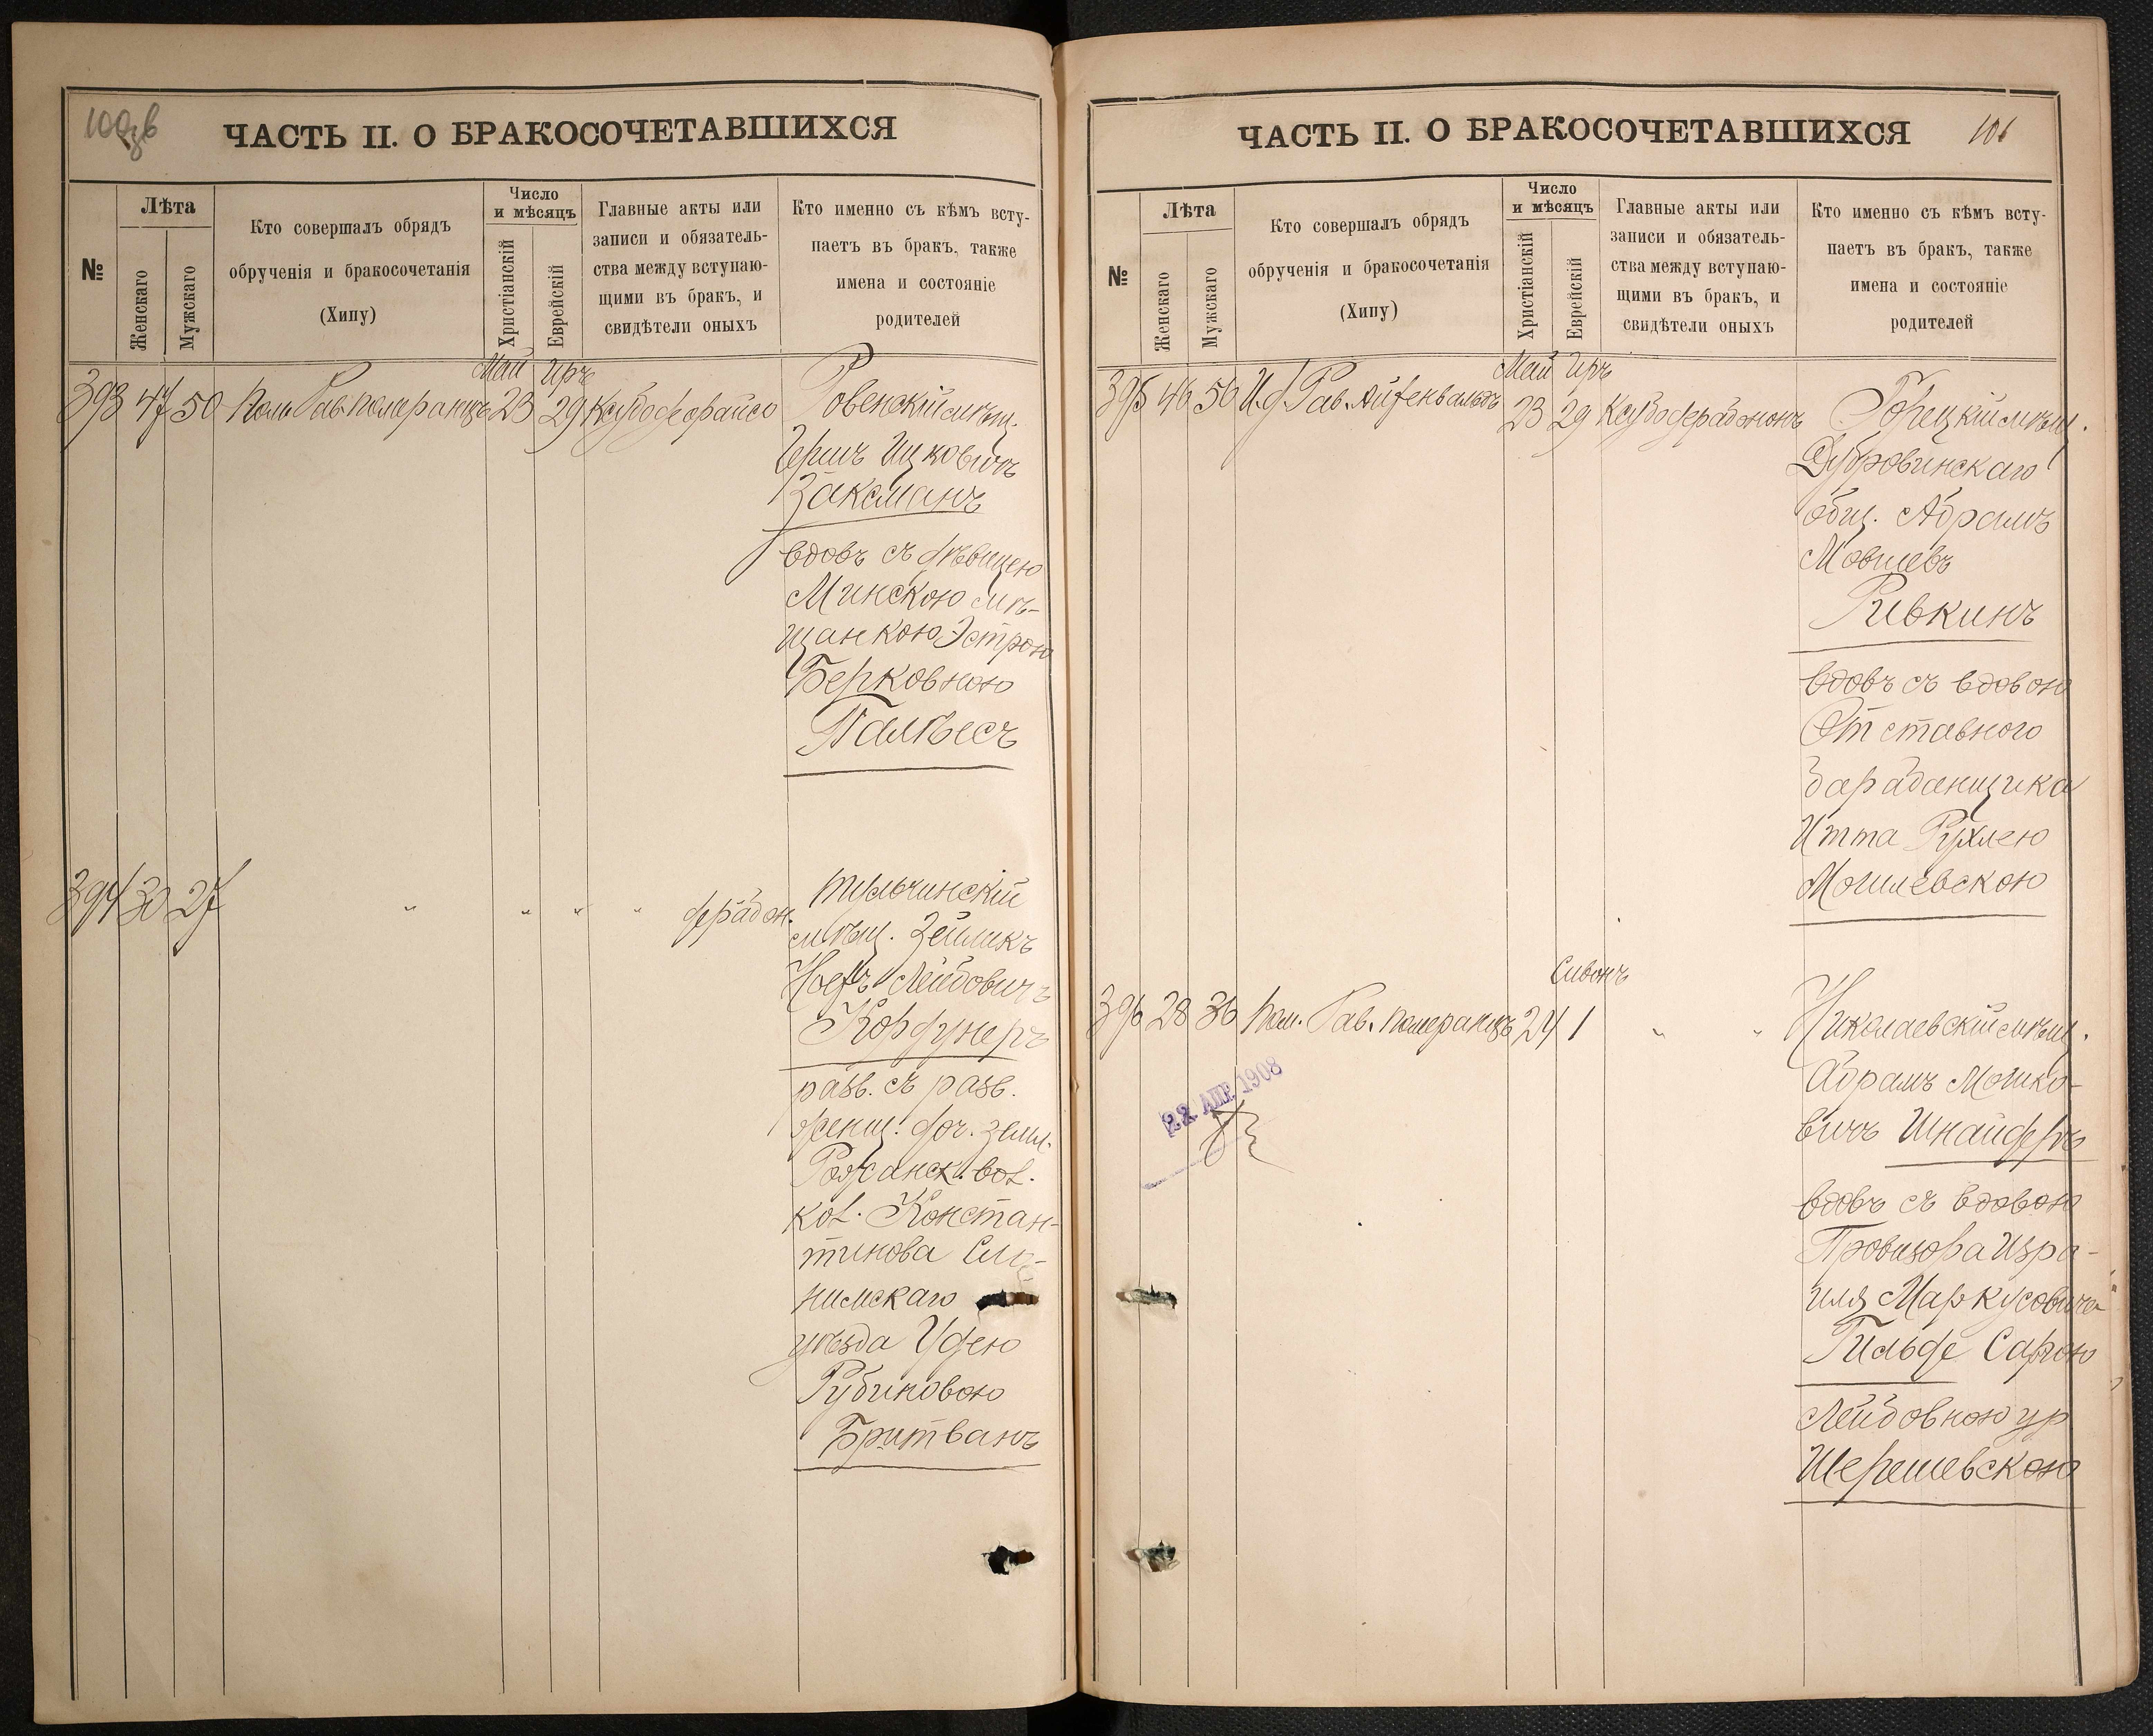 ЧАСТЬ II. О БРАКОСОЧЕТАВШИХСЯ
№
Лѣта
Женскаго
Мужскаго
Кто совершалъ обрядъ
обрученія и бракосочетанія
(Хипу)
Число
и мѣсяцъ
Христіанскій
Еврейскій
Главные акты или
записи и обязатель-
ства между вступаю-
щими въ бракъ, и
свидѣтели оныхъ
Кто именно съ кѣмъ всту-
паетъ въ бракъ, также
имена и состояніе
родителей
Май Иръ
393 47 50 Пом. Рав. Померанцъ 23 29
Ровенскій мѣщ.
Гершъ Ицковичъ
Заксманъ
вдовъ съ дѣвицею
Минскою мѣ-
щанкою Эстрою
Берковною
394 30 27 " " " "
Тульчинскій
мѣщ. Зейликъ
Лейбовичъ
Кордунеръ
разв. съ разв.
женщ. доч. земл.
Рожанск. вол.
кол. Константи-
тинова Сло-
нимскаго
уѣзда Удею
Рубиновою
Бритванъ
ЧАСТЬ II. О БРАКОСОЧЕТАВШИХСЯ
101
№
Лѣта
Женскаго
Мужскаго
Кто совершалъ обрядъ
обрученія и бракосочетанія
(Хипу)
Число
и мѣсяцъ
Христіанскій
Еврейскій
Главные акты или
записи и обязатель-
ства между вступаю-
щими въ бракъ, и
свидѣтели оныхъ
Кто именно съ кѣмъ всту-
паетъ въ бракъ, также
имена и состояніе
родителей
Май Иръ
395 46 50 И. д. Рав. Айзенвальдъ 23 29
Горецкій мѣщ.
Дубровинскаго
общ. Абрамъ
Мовшевъ
Ривкинъ
вдовъ съ вдовою
Отставного
барабанщика
Итта Рухлею
Могилевскою
Сивонъ
396 28 36 Пом. Рав. Померанцъ 24 1 " "
22 АПР 1908
Николаевскій мѣщ.
Абрамъ Мошко-
вичъ Шнайдеръ
вдовъ съ вдовою
Провизора Изра-
иля Маркусовича
Гильде Сарою
Лейбовною ур.
Шерешевскою